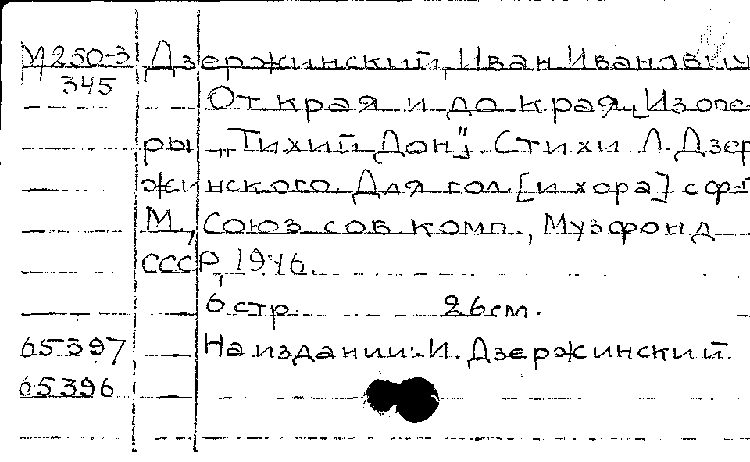 М250-3 Дзержинский, Иван Иванович
345
От края и до края. Из опе-
ры "Тихий Дон". Стихи Л. Дзер-
жинского. Для гол. [и хора] с ф-
М., Союз сов. комп., Музфонд
СССР, 1946.
6 стр. 26 см.
65397 На издании: И. Дзержинский.
65396